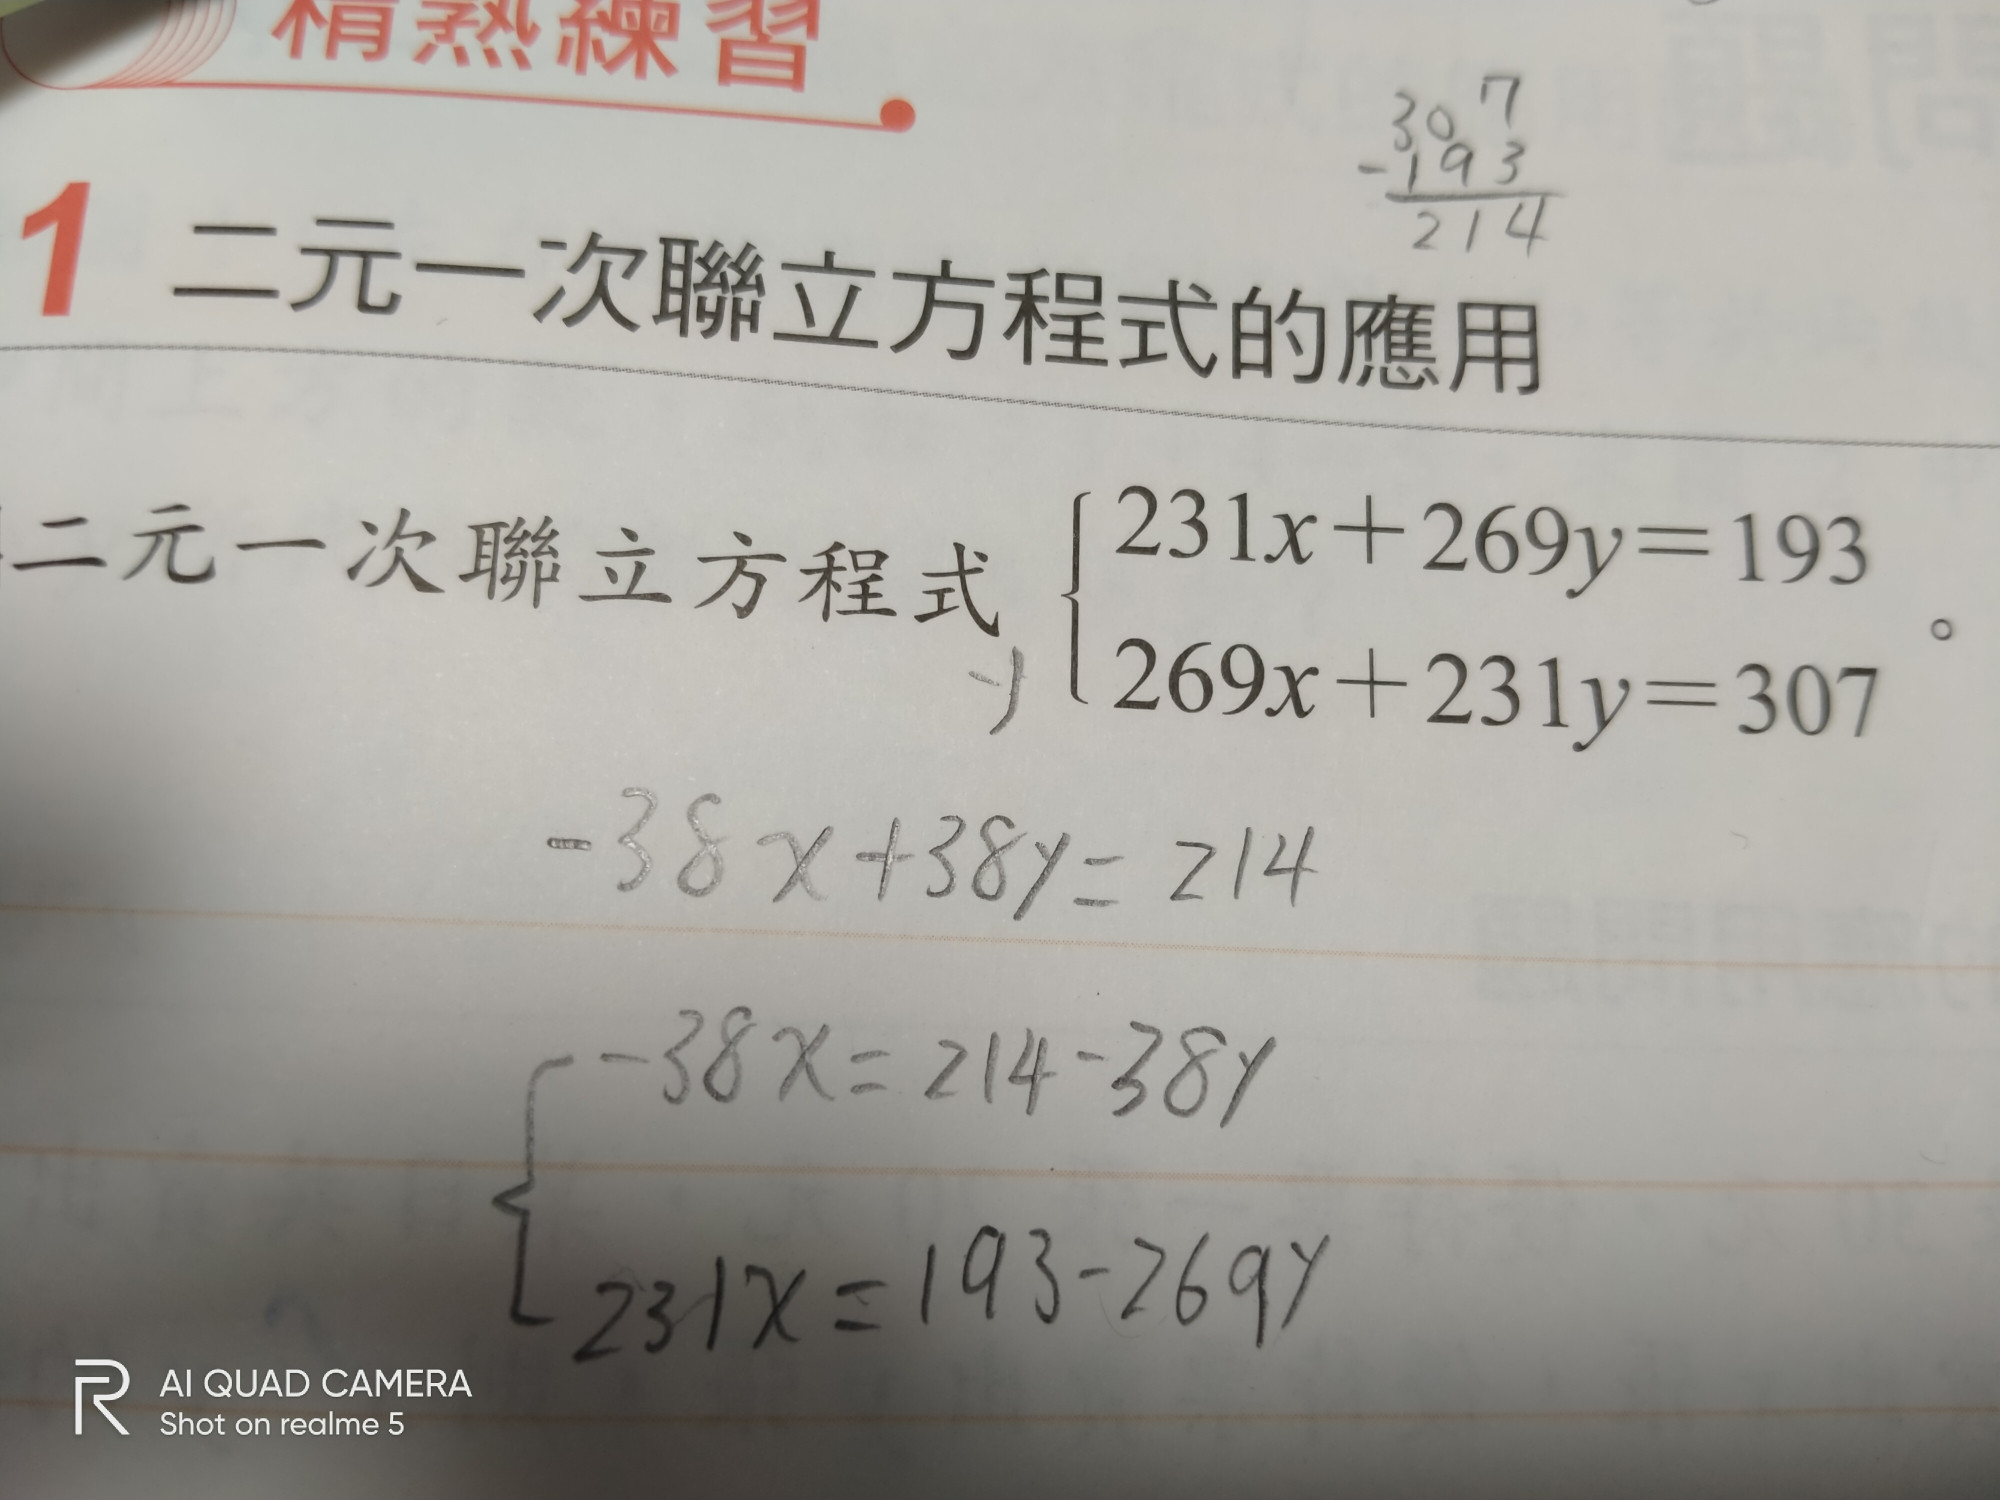 精熟練習
307
-193
214
1 二元一次聯立方程式的應用
二元一次聯立方程式 { 231x+269y=193
269x+231y=307 。
-)
-38x+38y=214
{ -38x=214-38y
231x=193-269y
AI QUAD CAMERA
Shot on realme 5